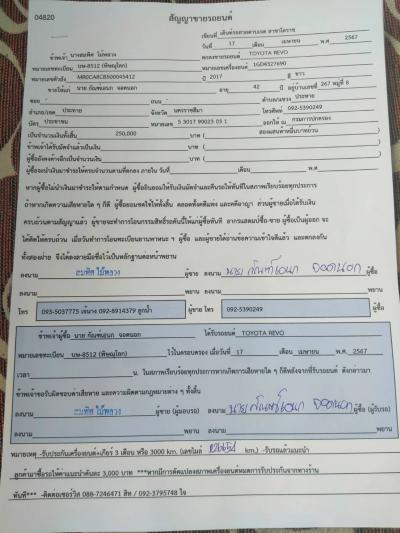 04820
สัญญาขายรถยนต์
เขียนที่ เต็นท์รถสวยตามเนต สาขาโคราช
วันที่ 17 เดือน เมษายน พ.ศ 2567
ข้าพเจ้า นางสมทิศ ไม้พลวง ตกลงขายรถยนต์ TOYOTA REVO
หมายเลขทะเบียน นษ-8512 (พิษณุโลก) หมายเลขเครื่องยนต์ 1GD6527690
หมายเลขตัวถัง MR0CA8CB500045412 ปี 2017 สี ขาว
ขายให้แก่ นาย กัณฑ์เอนก จอดนอก อายุ 42 ปี อยู่บ้านเลขที่ 267 หมู่ที่ 8
ซอย ถนน ตำบล/แขวง ประทาย
อำเภอ/เขต ประทาย จังหวัด นครราชสีมา โทรศัพท์ 092-5390249
บัตร ประชาชน หมายเลข 5 3017 90023 03 1 ออกให้ ณ กรมการปกครอง
เป็นจำนวนเงินทั้งสิ้น 250,000 บาท ( สองแสนห้าหมื่นบาทถ้วน )
ข้าพเจ้าได้รับมัดจำแล้วเป็นเงิน บาท ( )
ผู้ซื้อยังคงค้างอีกเป็นจำนวนเงิน บาท ( )
ผู้ซื้อจะนำเงินมาชำระให้ครบจำนวนตามที่ตกลง ภายใน วันที่ เดือน พ.ศ.
หากผู้ซื้อไม่นำเงินมาชำระให้ตามกำหนด ผู้ซื้อยินยอมให้ริบเงินมัดจำและคืนรถให้ทันทีในสภาพเรียบร้อยทุกประการ
ถ้าหากเกิดความเสียหายใด ๆ ก็ดี ผู้ซื้อยอมชดใช้ให้ทั้งสิ้น ตลอดทั้งคดีแพ่ง และคดีอาญา ส่วนผู้ขายเมื่อได้รับเงิน
ครบถ้วนตามสัญญาแล้ว ผู้ขายจะทำการโอนกรรมสิทธิ์รถคันนี้ให้แก่ผู้ซื้อทันที อากรแสตมป์ซื้อ-ขาย ผู้ซื้อเป็นผู้ออก จะ
ได้คิดให้ครบถ้วน เมื่อวันทำการโอนทะเบียนยานพาหนะ ฯ ผู้ซื้อ และผู้ขายได้อ่านข้อความเข้าใจดีแล้ว และตกลงกัน
ทั้งสองฝ่าย จึงได้ลงลายมือชื่อไว้เป็นหลักฐานต่อหน้าพยาน
ลงนาม สมทิศ ไม้พลวง ผู้ขาย ลงนาม นาย กัณฑ์เอนก จอดนอก ผู้ซื้อ
ลงนาม พยาน ลงนาม พยาน
โทร 093-5037775 092-8914379 ผู้ขาย โทร 092-5390249 ผู้ซื้อ
ข้าพเจ้าผู้ซื้อ นาย กัณฑ์เอนก จอดนอก ได้รับรถยนต์ TOYOTA REVO
หมายเลขทะเบียน นษ-8512 (พิษณุโลก) ไว้ในครอบครอง เมื่อวันที่ 17 เดือน เมษายน พ.ศ. 2567
เวลา น. ในสภาพเรียบร้อยทุกประการหากเกิดการเสียหายใด ๆ ก็ดีหลังจากที่รับรถยนต์ ดังกล่าวมา
ข้าพเจ้าขอรับผิดชอบค่าเสียหาย และความผิดตามกฎหมายต่าง ๆ ทั้งสิ้น
ลงนาม สมทิศ ไม้พลวง ผู้ขาย (ผู้มอบรถ) ลงนาม นาย กัณฑ์เอนก จอดนอก ผู้ซื้อ (ผู้รับรถ)
ลงนาม พยาน ลงนาม พยาน
หมายเหตุ -รับประกันเครื่องยนต์+เกียร์ 3 เดือน หรือ 3000 km. (เลขไมล์ km.) -รับรถแล้วแนะนำ
ลูกค้ามาซื้อรถให้ค่าแนะนำคันละ 3,000 บาท ***หากมีการดัดแปลงสภาพเครื่องยนต์หมดการรับประกันจากทางร้าน
ทันที*** -ติดต่อเซอร์วิส 088-7246471 สิท / 092-3795748 ไจ